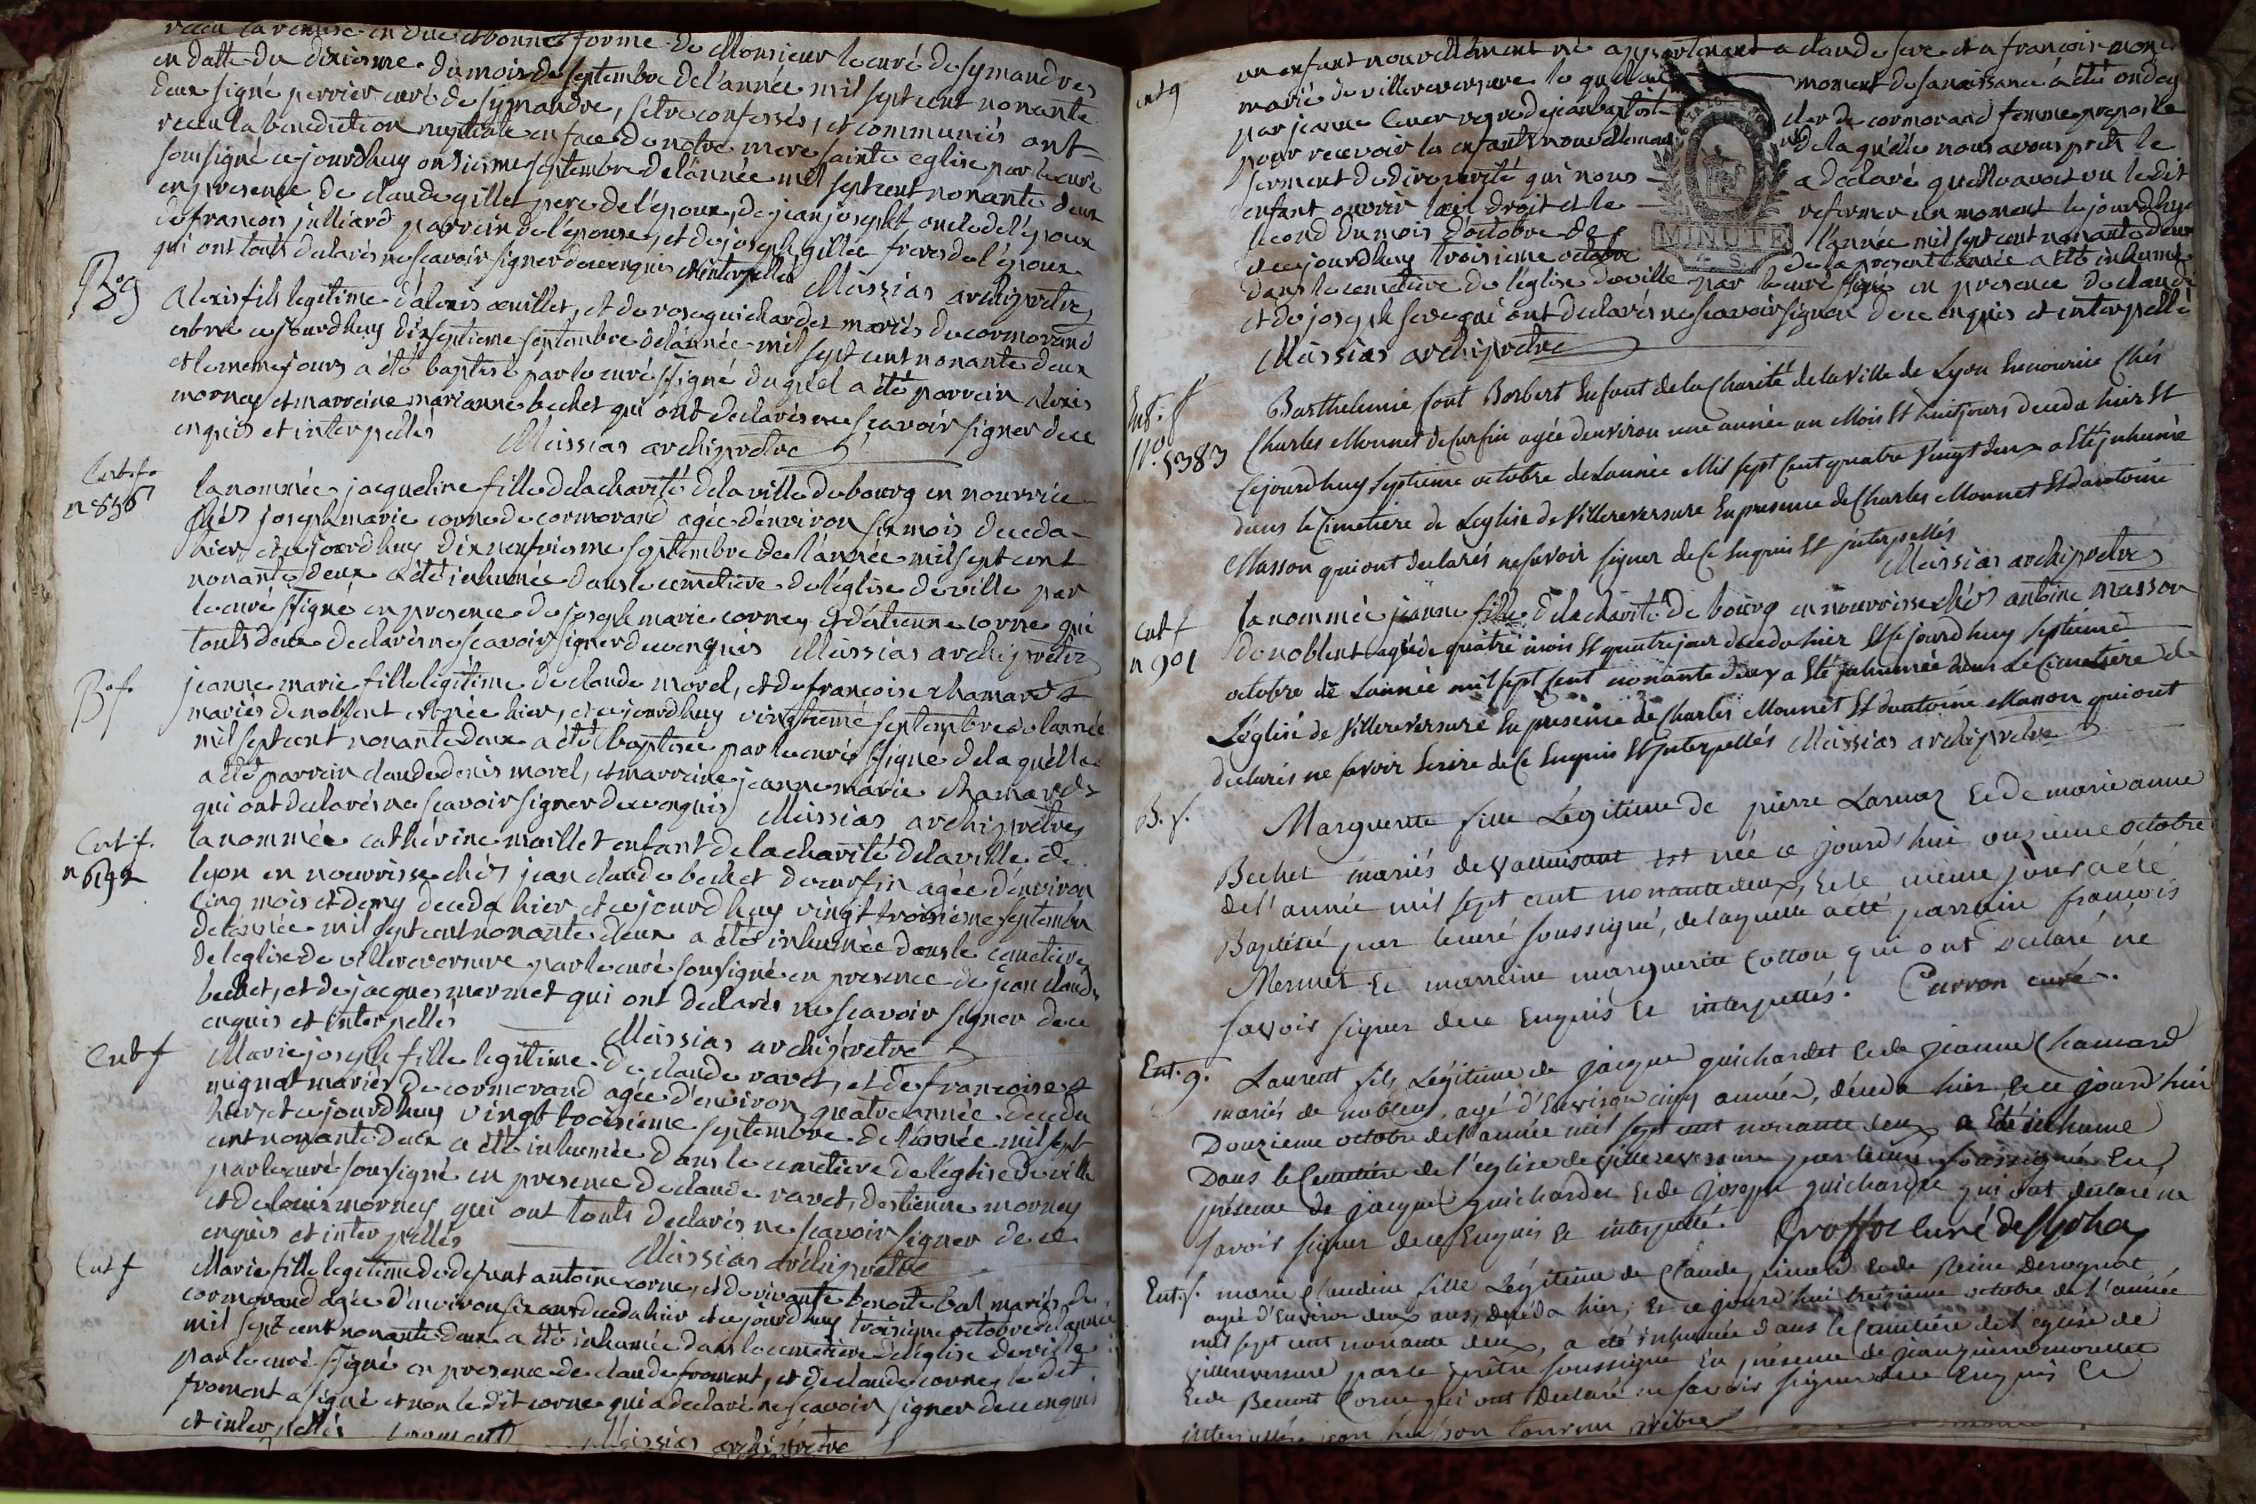 receu la remise en due et bonne forme de Monsieur le curé de symandres
en datte du dixiesme du mois de septembre de l'année mil sept cent nonante
deux signé perrier curé de symandre, s'etre confessés, et communiés ont
receu la benediction nuptiale en face de notre mere sainte eglise par le curé
soussigné ce jourdhuy onsiesme septembre de l'année mil sept cent nonante deux
en presence de claude gillet pere de l'epoux, de jean joseph oncle de l'epoux
de francois julliard parrain de l'epouse, et de joseph gillet frere de l'epoux
qui ont touts declarés ne scavoir signer de ce enquis et interpellés Messias archipretre
B. g
alexis fils legitime d'alexis œuillet, et de rose guichardet mariés de cormorand
est né ce jourdhuy dixseptieme septembre de l'année mil sept cent nonante deux
et le meme jours a été baptisé par le curé ssigné du quel a été parrain alexis
morney et marreine marianne bechet qui ont declarés ne scavoir signer de ce
enquis et interpellés Messias archipretre
Ent. f.
n 856
la nommée jacqueline fille de la charité de la ville de bourg en nourrice
chés joseph marie corne de cormorand agée d'environ six mois decedа
hier, et ce jourdhuy dix neufviesme septembre de l'année mil sept cent
nonante deux a été inhumée dans le cemetiere de l'église de ville par
le curé ssigné en presence de joseph marie corne, et d'étienne corne qui
touts deux declarés ne scavoir signer de ce enquis Messias archipretre
B. f.
jeanne marie fille legitime de claude morel, et de francoise chamard
mariés de noblent est née hier, et ce jourdhuy vingtiemé septembre de l'année
mil sept cent nonante deux a été baptisée par le curé ssigné de la quelle
a été parrain claude denis morel, et marreine jeanne marie chamard
qui ont declarés ne scavoir signer de ce enquis Messias archipretre
Ent f.
n 6192
la nommée cathérine maillet enfant de la charité de la ville de
lyon en nourrisse chés jean claude bechet de curfin agée d'environ
cinq mois et demy deceda hier et ce jourdhuy vingt troisieme septembre
de l'année mil sept cent nonante deux a été inhumée dans le cemetiere
de l'eglise de villereversure par le curé soussigné en presence de jean claude
bechet, et de jacques mermet qui ont declarés ne scavoir signer de ce
enquis et interpellés Messias archipretre
Ent f
Marie joseph fille legitime de claude ravet, et de francoise
mignat mariés de cormorand agée d'environ quatre année deceda
hier et ce jourdhuy vingt troisieme septembre de l'année mil sept
cent nonante deux a été inhumée dans le cemetiere de l'église de ville
par le curé soussigné en presence de claude ravet, d'estienne morney
et de louis morney qui ont touts declarés ne scavoir signer de ce
enquis et interpellés Messias archipretre
Ent f
Marie fille legitime de defunt antoine corne, et de vivante benoite bal mariés de
cormorand agée d'environ six ans deceda hier et ce jourdhuy troisieme octobre de l'année
mil sept cent nonante deux a été inhumée dans le cemetiere de l'église de ville
par le curé ssigné en presence de claude froment, et de claude corne, le dit
froment a signé et non le dit corne qui a declaré ne scavoir signer de ce enquis
et interpellés froment Messias archipretre
ent g
un enfant nouvellement né appartenant a claude seve et a françoise
marié de villereversure le quel au moment de sa naissance a été ondoyé
par jeanne de jean baptiste de cormorand femme preposée
pour recevoir les enfants nouvellement nés de la quelle nous avons pris le
serment de dire verité qui nous a declaré quelle avoit vu le dit
enfant ouvrir l'œil droit et le refermer un moment le jourdhuy
second du mois d'octobre de l'année mil sept cent nonante deux
et ce jourdhuy troisieme octobre de la present année a été inhumé
dans le cemetiere de l'église de ville par le curé ssigné en presence de claude
et de joseph seve qui ont declarés ne scavoir signer de ce enquis et interpellé
Messias archipretre
MINUTE
Ent. f
N° 5383
Barthelemie font Borbert Enfant de la Charité de la ville de Lyon En nourrice Chés
Charles Monnet de Curfin agée denviron une année un Mois Et huit jours deceda hier Et
Cejourdhuy Septieme octobre de Lannée Mil Sept Cent quatre Vingt deux a Eté Juhumée
dans le Cimetiere de Leglise de Villereversure En presence de Charles Monnet Et dantoine
Masson qui ont declarés ne savoir signer de Ce Enquis Et Jnterpellés
Messias archipretre
ent f
n 901
la nommée jeanne fille de la charité de bourg en nourrisse chés antoine masson
de noblent agée de quatre mois Et quatre jour deceda hier Et Cejourdhuy Septieme
octobre de Lannée mil sept Cent nonante deux a Eté Jnhumée dans Le Cimetiere de
L'églisé de Villereversure En presence de Charles Monnet Et dantoine Masson qui ont
declarés ne savoir Ecrire de Ce Enquis Et Jnterpellés Messias archipretre
B. f.
Marguerite fille Légitime de pierre Larnaz Et de marie anne
Bechet mariés de Valuisant est née ce jourd'hui onzieme octobre
de l'année mil sept cent nonante deux, Et le meme jour a été
Baptisée par le curé soussigné, de laquelle a été parrain françois
Mermet Et marreine marguerite Cotton qui ont declaré ne
savoir signer de ce Enquis Et interpellés. Carron curé.
Ent. g.
Laurent fils Légitime de jacque guichardet Et de jeanne Chamard
mariés de noblens, agé d'Environ cinq années, déceda hier Et ce jourd'hui
Douzieme octobre de l'année mil sept cent nonante deux a Eté inhumé
Dans le Cemetiére de l'église de villereversure par le curé soussigné En
présence de jacque guichardet Et de joseph guichardet qui ont declaré ne
savoir signer de ce Enquis Et interpellé.
Ent. f.
marie Claudine fille Légitime de Claude Et de Reine Derognat
agée d'Environ deux ans, déceda hier, Et ce jourd'hui treizieme octobre de l'année
mil sept cent nonante deux, a été inhumée dans le Cimetiére de l'église de
villereversure par le prêtre soussigné En présence de jean pierre
Et de Benoit Corne qui ont declaré ne savoir signer de ce Enquis Et
prêtre